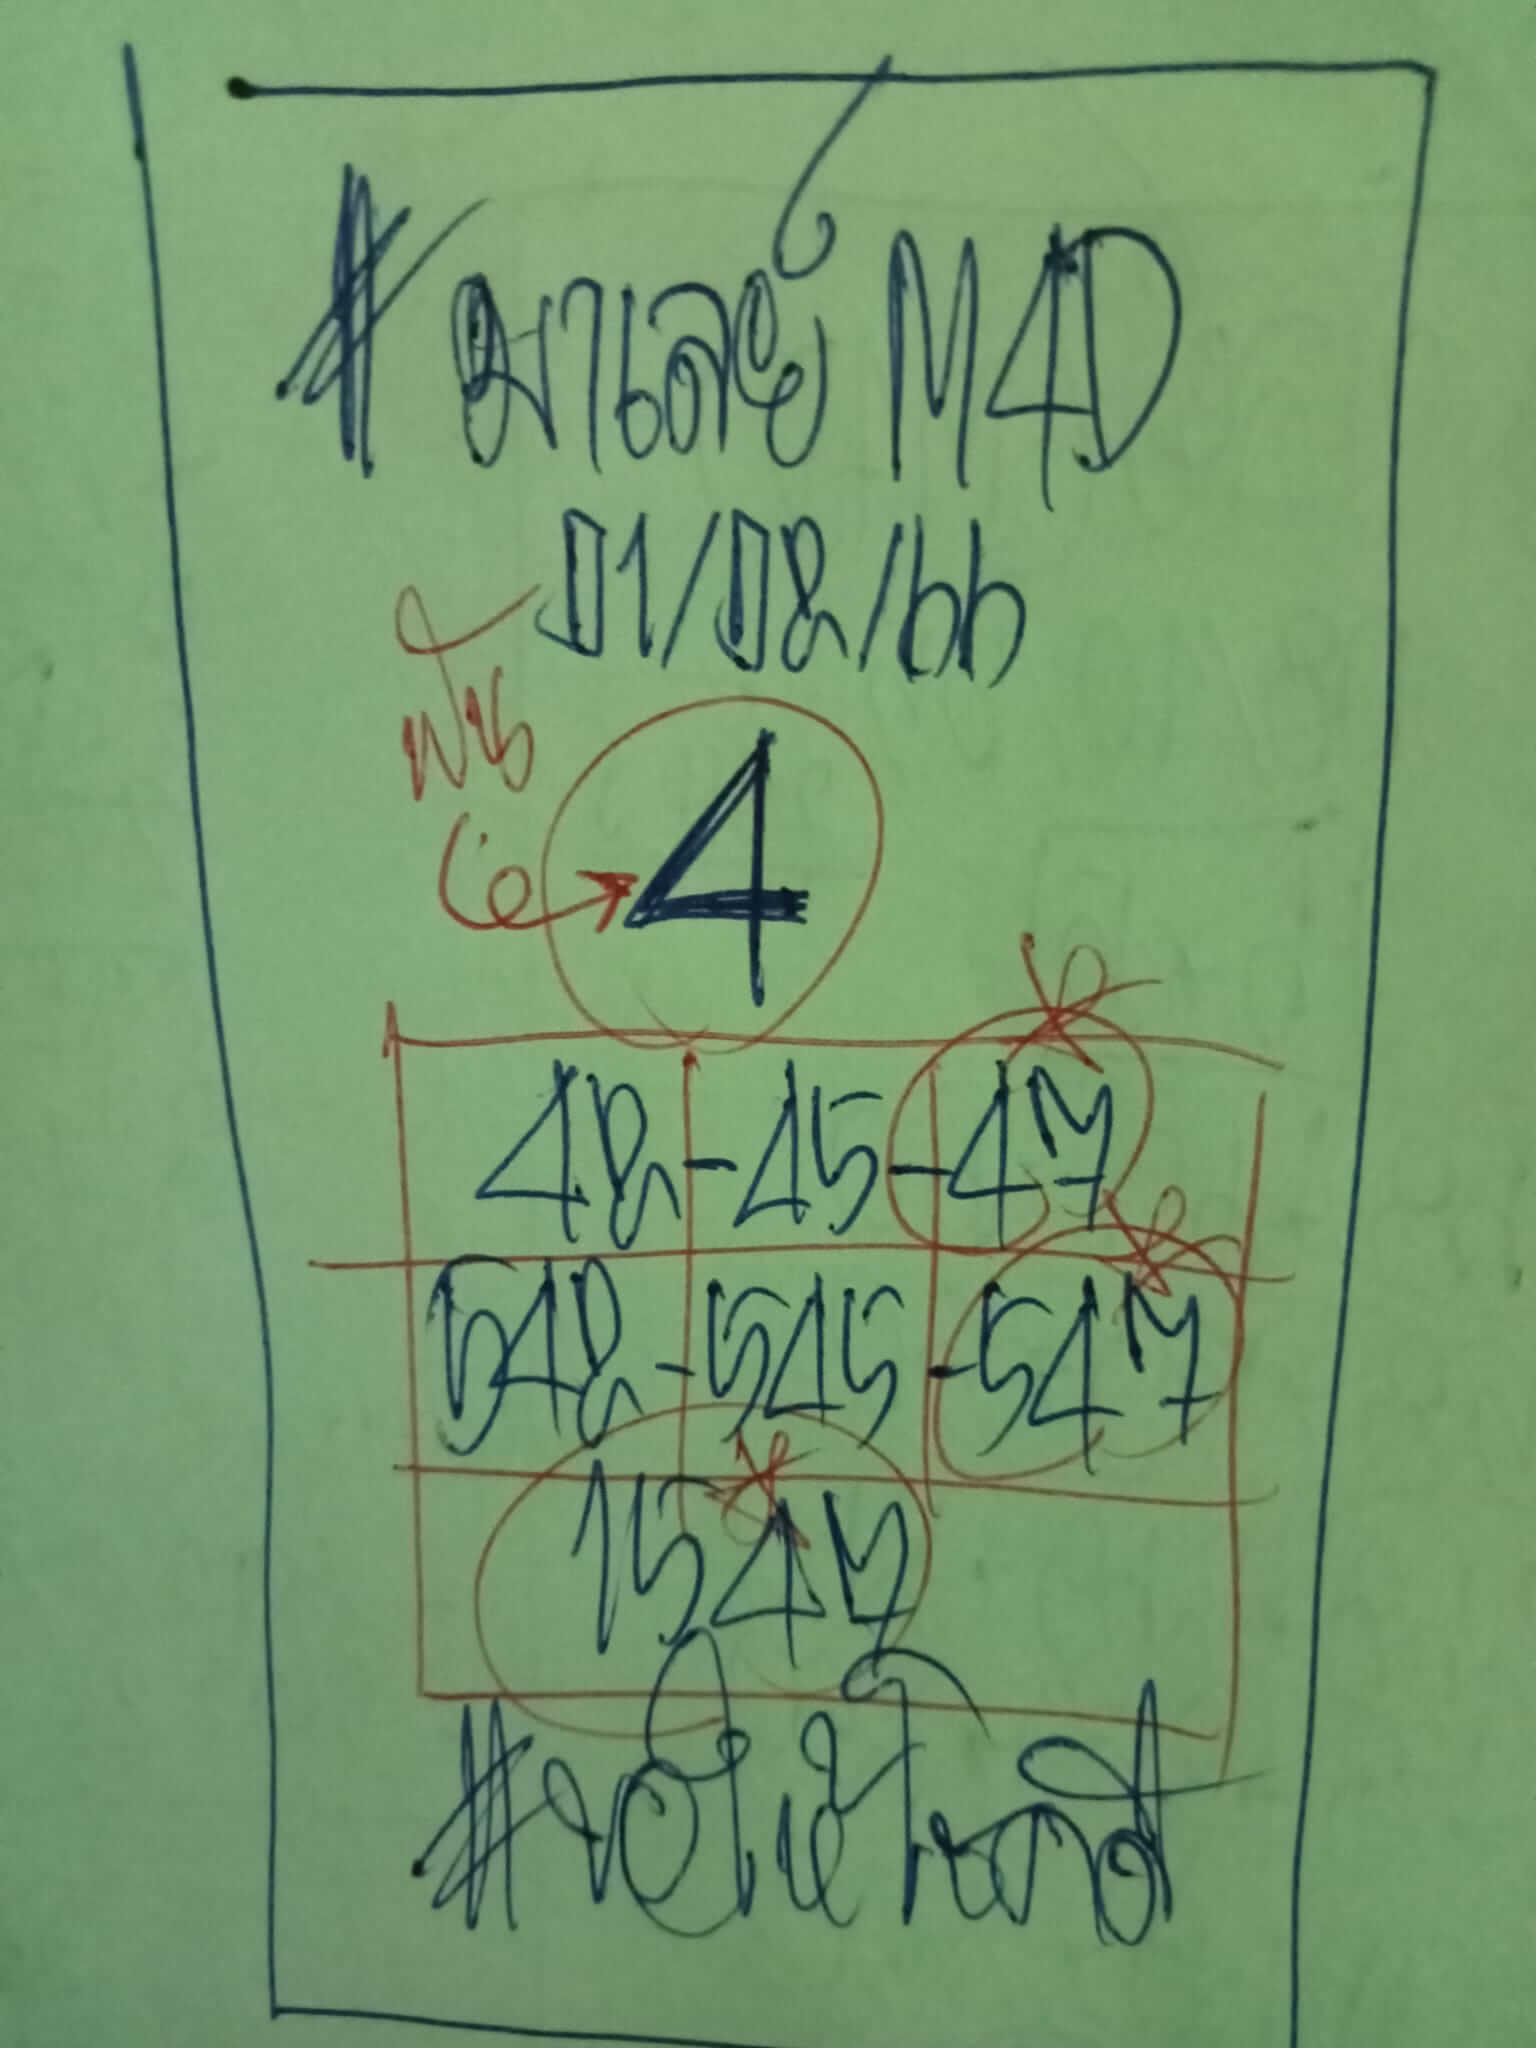 # มาเลย์ M4D
01/08/66
ฟัน
4
48-45-47
548-545-547
1547
#ขอให้โชคดี